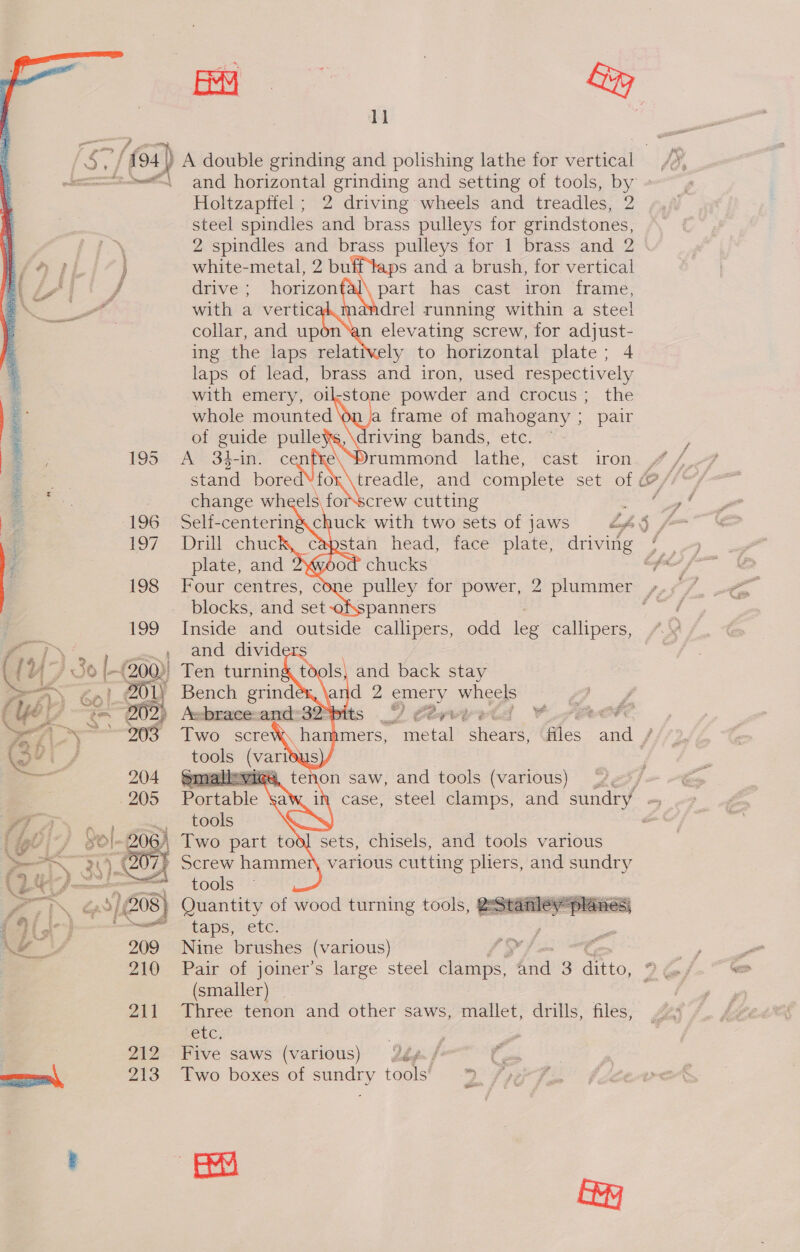 EMM EMM
11
194 A double grinding and polishing lathe for vertical
and horizontal grinding and setting of tools, by
Holtzapffel ; 2 driving wheels and treadles, 2
steel spindles and brass pulleys for grindstones,
2 spindles and brass pulleys for 1 brass and 2
white-metal, 2 buff laps and a brush, for vertical
drive ; horizontal part has cast iron frame,
with a vertical mandrel running within a steel
collar, and upon an elevating screw, for adjust-
ing the laps relatively to horizontal plate ; 4
laps of lead, brass and iron, used respectively
with emery, oil-stone powder and crocus ; the
whole mounted on a frame of mahogany ; pair
of guide pulleys, driving bands, etc.
195 A 3½-in. centre Drummond lathe, cast iron
stand bored for treadle, and complete set of
change wheels for screw cutting
196 Self-centering chuck with two sets of jaws
197 Drill chuck, capstan head, face plate, driving
plate, and 2 wood chucks
198 Four centres, cone pulley for power, 2 plummer
blocks, and set of spanners
199 Inside and outside callipers, odd leg callipers,
and dividers
200 Ten turning tools, and back stay
201 Bench grinder, and 2 emery wheels
202 A brace and 32 bits
203 Two screw hammers, metal shears, files and
tools (various)
204 Small vice, tenon saw, and tools (various)
205 Portable saw in case, steel clamps, and sundry
tools
206 Two part tool sets, chisels, and tools various
207 Screw hammer, various cutting pliers, and sundry
tools
208 Quantity of wood turning tools, 2 Stanley planes,
taps, etc.
209 Nine brushes (various)
210 Pair of joiner's large steel clamps, and 3 ditto,
(smaller)
211 Three tenon and other saws, mallet, drills, files,
etc.
212 Five saws (various)
213 Two boxes of sundry tools
EMM
EMM